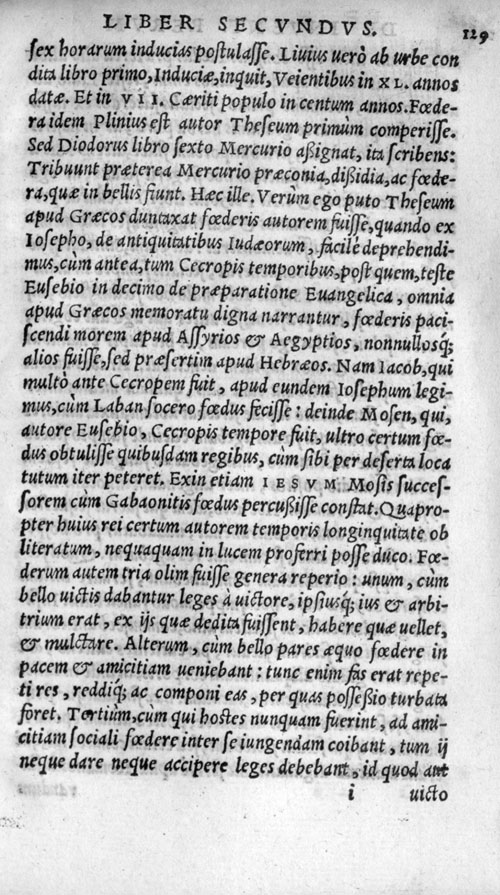 LIBER SECVNDVS. 129
ſex horarum inducias poſtulaſſe. Liuius uerò ab urbe con
dita libro primo, Induciæ, inquit, Veientibus in XL. annos
datæ. Et in VII. Cæriti populo in centum annos. Fœde-
ra idem Plinius eſt autor Theſeum primùm comperiſſe.
Sed Diodorus libro ſexto Mercurio aßignat, ita ſcribens:
Tribuunt præterea Mercurio præconia, dißidia, ac fœde-
ra, quæ in bellis fiunt. Hæc ille. Verùm ego puto Theſeum
apud Græcos duntaxat fœderis autorem fuiſſe, quando ex
Ioſepho, de antiquitatibus Iudæorum, facilè deprehendi-
mus, cùm antea, tum Cecropis temporibus, poſt quem, teſte
Euſebio in decimo de præparatione Euangelica, omnia
apud Græcos memoratu digna narrantur, fœderis paci-
ſcendi morem apud Aſſyrios & Aegyptios, nonnulloſq;
alios fuiſſe, ſed præſertim apud Hebræos. Nam Iacob, qui
multò ante Cecropem fuit, apud eundem Ioſephum legi-
mus, cùm Laban ſocero fœdus feciſſe: deinde Moſen, qui,
autore Euſebio, Cecropis tempore fuit, ultro certum fœ-
dus obtuliſſe quibuſdam regibus, cùm ſibi per deſerta loca
tutum iter peteret. Exin etiam IESVM Moſis ſucceſ-
ſorem cùm Gabaonitis fœdus percußiſſe conſtat. Quapro-
pter huius rei certum autorem temporis longinquitate ob
literatum, nequaquam in lucem proferri poſſe duco. Fœ-
derum autem tria olim fuiſſe genera reperio: unum, cùm
bello uictis dabantur leges à uictore, ipſiuſq; ius & arbi-
trium erat, ex ijs quæ dedita fuiſſent, habere quæ uellet,
& mulctare. Alterum, cùm bello pares æquo fœdere in
pacem & amicitiam ueniebant: tunc enim fas erat repe-
ti res, reddiq; ac componi eas, per quas poſſeßio turbata
foret. Tertiùm, cùm qui hoſtes nunquam fuerint, ad ami-
citiam ſociali fœdere inter ſe iungendam coibant, tum ij
neque dare neque accipere leges debebant, id quod aut
i uicto